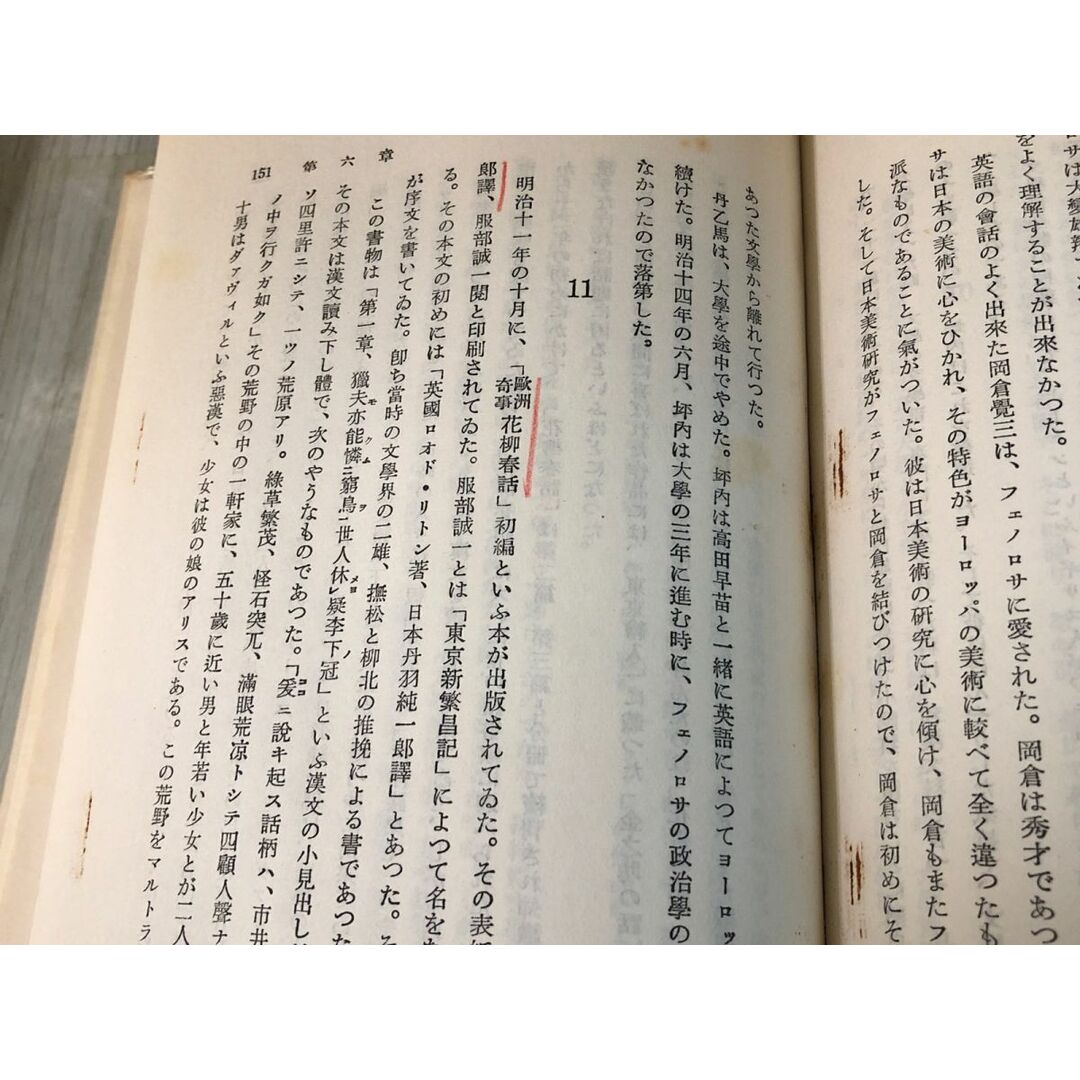 サは大變雄
をよく理解することが出來なかつた。
英語の會話のよく出來た岡倉覺三は、フェノロサに愛された。岡倉は秀才であつ
サは日本の美術に心をひかれ、その特色がヨーロッパの美術に較べて全く違つたも
派なものであることに氣がついた。彼は日本美術の研究に心を傾け、岡倉もまたフ
した。そして日本美術研究がフェノロサと岡倉を結びつけたので、岡倉は初めにそ
あつた文學から離れて行つた。
丹乙馬は、大學を途中でやめた。坪内は高田早苗と一緒に英語によつてヨーロッ
續けた。明治十四年の六月、坪内は大學の三年に進む時に、フェノロサの政治學の
なかつたので落第した。
11
明治十一年の十月に、「歐洲奇事花柳春話」初編といふ本が出版されてゐた。その表
郎譯、服部誠一閲と印刷されてゐた。服部誠一とは「東京新繁昌記」によつて名を
る。その本文の初めには「英國ロオド・リトン著、日本丹羽純一郎譯」とあつた。そ
が序文を書いてゐた。卽ち當時の文學界の二雄、撫松と柳北の推挽による書であつた
この書物は「第一章、獵夫亦能憐ニ窮鳥一世人休レ疑李下冠」といふ漢文の小見出し
その本文は漢文讀み下し體で、次のやうなものであつた。「爰ニ說キ起ス話柄ハ、市井
ソ四里許ニシテ、一ツノ荒原アリ。綠草繁茂、怪石突兀、滿眼荒凉トシテ四顧人聲ナ
ノ中ヲ行クガ如ク」その荒野の中の一軒家に、五十歲に近い男と年若い少女とが二人
十男はダァヴィルといふ惡漢で、少女は彼の娘のアリスである。この荒野をマルトラ
151 第六章